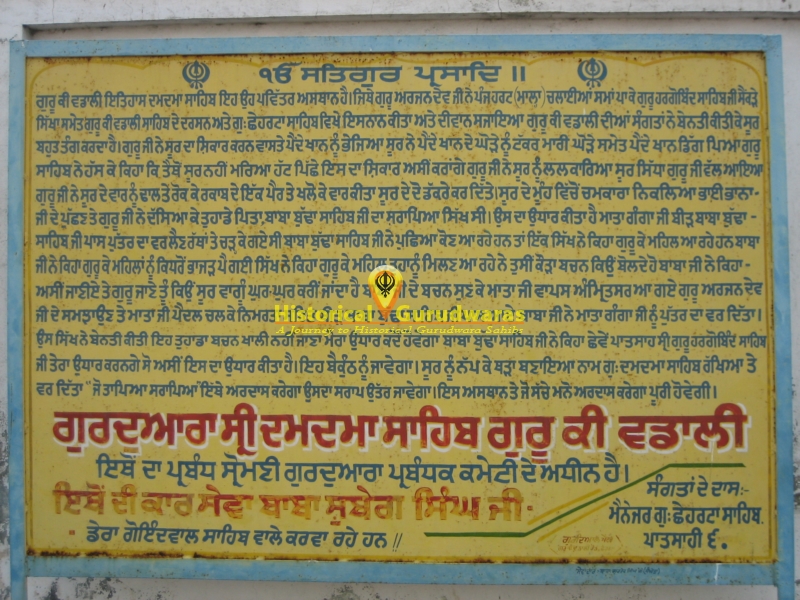 ੴ ਸਤਿਗੁਰ ਪ੍ਰਸਾਦਿ ॥
ਗੁਰੂ ਕੀ ਵਡਾਲੀ ਇਤਿਹਾਸ ਦਮਦਮਾ ਸਾਹਿਬ ਇਹ ਉਹ ਪਵਿੱਤਰ ਅਸਥਾਨ ਹੈ। ਜਿਥੇ ਗੁਰੂ ਅਰਜਨ ਦੇਵ ਜੀ ਨੇ ਪੰਜਹਰਟ (ਮਾਲ੍ਹ) ਚਲਾਈਆਂ ਸਮਾਂ ਪਾ ਕੇ ਗੁਰੂ ਹਰਗੋਬਿੰਦ ਸਾਹਿਬ ਜੀ ਸੈਂਕੜੇ
ਸਿੱਖਾ ਸਮੇਤ ਗੁਰੂ ਕੀ ਵਡਾਲੀ ਸਾਹਿਬ ਦੇ ਦਰਸਨ ਅਤੇ ਗੁ: ਛੇਹਰਟਾ ਸਾਹਿਬ ਵਿਖੇ ਇਸਨਾਨ ਕੀਤਾ ਅਤੇ ਦੀਵਾਨ ਸਜਾਇਆ ਗੁਰੂ ਕੀ ਵਡਾਲੀ ਦੀਆਂ ਸੰਗਤਾਂ ਨੇ ਬੇਨਤੀ ਕੀਤੀ ਕੇ ਸੂਰ
ਬਹੁਤ ਤੰਗ ਕਰਦਾ ਹੈ। ਗੁਰੂ ਜੀ ਨੇ ਸੂਰ ਦਾ ਸ਼ਿਕਾਰ ਕਰਨ ਵਾਸਤੇ ਪੈਂਦੇ ਖਾਨ ਨੂੰ ਭੇਜਿਆ ਸੂਰ ਨੇ ਪੈਂਦੇ ਖਾਨ ਦੇ ਘੋੜੇ ਨੂੰ ਟੱਕਰ ਮਾਰੀ ਘੋੜੇ ਸਮੇਤ ਪੈਂਦੇ ਖਾਨ ਡਿੱਗ ਪਿਆ ਗੁਰੂ
ਸਾਹਿਬ ਨੇ ਹੱਸ ਕੇ ਕਿਹਾ ਕਿ ਤੈਥੋਂ ਸੂਰ ਨਹੀਂ ਮਰਿਆ ਹੱਟ ਪਿੱਛੇ ਇਸ ਦਾ ਸ਼ਿਕਾਰ ਅਸੀਂ ਕਰਾਂਗੇ ਗੁਰੂ ਜੀ ਨੇ ਸੂਰ ਨੂੰ ਲਲਕਾਰਿਆ ਸੂਰ ਸਿੱਧਾ ਗੁਰੂ ਜੀ ਵੱਲ ਆਇਆ
ਗੁਰੂ ਜੀ ਨੇ ਸੂਰ ਦੇ ਵਾਰ ਨੂੰ ਢਾਲ ਤੇ ਰੋਕ ਕੇ ਰਕਾਬ ਦੇ ਇੱਕ ਪੈਰ ਤੇ ਖਲੋ ਕੇ ਵਾਰ ਕੀਤਾ ਸੂਰ ਦੇ ਦੋ ਡੱਕਰੇ ਕਰ ਦਿੱਤੇ। ਸੂਰ ਦੇ ਮੂੰਹ ਵਿੱਚੋਂ ਚਮਕਾਰਾ ਨਿਕਲਿਆ ਭਾਈ ਭਾਨਾ-
ਜੀ ਦੇ ਪੁੱਛਣ ਤੇ ਗੁਰੂ ਜੀ ਨੇ ਦੱਸਿਆ ਕੇ ਤੁਹਾਡੇ ਪਿਤਾ, ਬਾਬਾ ਬੁੱਢਾ ਸਾਹਿਬ ਜੀ ਦਾ ਸਰਾਪਿਆ ਸਿੱਖ ਸੀ। ਉਸ ਦਾ ਉਧਾਰ ਕੀਤਾ ਹੈ ਮਾਤਾ ਗੰਗਾ ਜੀ ਬੀੜ ਬਾਬਾ ਬੁੱਢਾ-
ਸਾਹਿਬ ਜੀ ਪਾਸ ਪੁੱਤਰ ਦਾ ਵਰ ਲੈਣ ਰੱਥਾਂ ਤੇ ਚੜ ਕੇ ਗਏ ਸੀ ਬਾਬਾ ਬੁੱਢਾ ਸਾਹਿਬ ਜੀ ਨੇ ਪੁਛਿਆ ਕੋਣ ਆ ਰਹੇ ਹਨ ਤਾਂ ਇੱਕ ਸਿੱਖ ਨੇ ਕਿਹਾ ਗੁਰੂ ਕੇ ਮਹਿਲ ਆ ਰਹੇ ਹਨ ਬਾਬਾ
ਜੀ ਨੇ ਕਿਹਾ ਗੁਰੂ ਕੇ ਮਹਿਲਾਂ ਨੂੰ ਕਿਧਰੋਂ ਭਾਜੜ ਪੈ ਗਈ ਸਿੱਖ ਨੇ ਕਿਹਾ ਗੁਰੂ ਕੇ ਮਹਿਲ ਤੁਹਾਨੂੰ ਮਿਲਣ ਆ ਰਹੇ ਨੇ ਤੁਸੀਂ ਕੌੜਾ ਬਚਨ ਕਿਉਂ ਬੋਲਦੇ ਹੋ ਬਾਬਾ ਜੀ ਨੇ ਕਿਹਾ-
ਅਸੀਂ ਜਾਣੀਏ ਤੇ ਗੁਰੂ ਜਾਣੇ ਤੂੰ ਕਿਉਂ ਸੂਰ ਵਾਂਗੂੰ ਘੁਰ-ਘੁਰ ਕਰੀਂ ਜਾਂਦਾ ਹੈ ਦੇ ਬਚਨ ਸੁਣ ਕੇ ਮਾਤਾ ਜੀ ਵਾਪਸ ਅੰਮ੍ਰਿਤਸਰ ਆ ਗਏ ਗੁਰੂ ਅਰਜਨ ਦੇਵ
ਜੀ ਦੇ ਸਮਝਾਉਣ ਤੇ ਮਾਤਾ ਜੀ ਪੈਦਲ ਚਲ ਕੇ ਬਾਬਾ ਜੀ ਨੇ ਮਾਤਾ ਗੰਗਾ ਜੀ ਨੂੰ ਪੁੱਤਰ ਦਾ ਵਰ ਦਿੱਤਾ।
Historical Gurudwaras
A Journey to Historical Gurudwara Sahibs
ਉਸ ਸਿੱਖ ਨੇ ਬੇਨਤੀ ਕੀਤੀ ਇਹ ਤੁਹਾਡਾ ਬਚਨ ਖਾਲੀ ਨਹੀਂ ਜਾਣਾ ਮੇਰਾ ਉਧਾਰ ਕਦੋਂ ਹੋਵੇਗਾ ਬਾਬਾ ਬੁੱਢਾ ਸਾਹਿਬ ਜੀ ਨੇ ਕਿਹਾ ਛੇਵੇਂ ਪਾਤਸਾਹ ਸ੍ਰੀ ਗੁਰੂ ਹਰਗੋਬਿੰਦ ਸਾਹਿਬ
ਜੀ ਤੇਰਾ ਉਧਾਰ ਕਰਨਗੇ ਸੋ ਅਸੀਂ ਇਸ ਦਾ ਉਧਾਰ ਕੀਤਾ ਹੈ। ਇਹ ਬੈਕੁੰਠ ਨੂੰ ਜਾਵੇਗਾ। ਸੂਰ ਨੂੰ ਨੱਪ ਕੇ ਥੜਾ ਬਣਾਇਆ ਨਾਮ ਗੁ: ਦਮਦਮਾ ਸਾਹਿਬ ਰੱਖਿਆ ਤੇ
ਵਰ ਦਿੱਤਾ "ਜੋ ਤਾਪਿਆ ਸਰਾਪਿਆ" ਇਥੇ ਅਰਦਾਸ ਕਰੇਗਾ ਉਸਦਾ ਸਰਾਪ ਉਤਰ ਜਾਵੇਗਾ। ਇਸ ਅਸਥਾਨ ਤੇ ਜੋ ਸੱਚੇ ਮਨੋਂ ਅਰਦਾਸ ਕਰੇਗਾ ਪੂਰੀ ਹੋਵੇਗੀ।
ਗੁਰਦੁਆਰਾ ਸ੍ਰੀ ਦਮਦਮਾ ਸਾਹਿਬ ਗੁਰੂ ਕੀ ਵਡਾਲੀ
ਇਥੋਂ ਦਾ ਪ੍ਰਬੰਧ ਸ੍ਰੋਮਣੀ ਗੁਰਦੁਆਰਾ ਪ੍ਰਬੰਧਕ ਕਮੇਟੀ ਦੇ ਅਧੀਨ ਹੈ।
ਇਥੋਂ ਦੀ ਕਾਰ ਸੇਵਾ ਬਾਬਾ ਸੁਬੇਗ ਸਿੰਘ ਜੀ.
ਡੇਰਾ ਗੋਇੰਦਵਾਲ ਸਾਹਿਬ ਵਾਲੇ ਕਰਵਾ ਰਹੇ ਹਨ ॥
ਸੰਗਤਾਂ ਦੇ ਦਾਸ:-
ਮੈਨੇਜਰ ਗੁ: ਛੇਹਰਟਾ ਸਾਹਿਬ.
ਪਾਤਸਾਹੀ ੬.